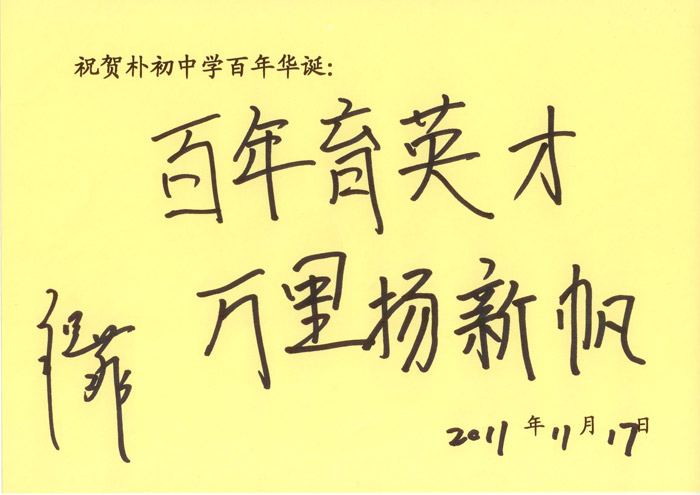 祝贺朴初中学百年华诞:
百年育英才
万里扬新帆
2011年11月17日